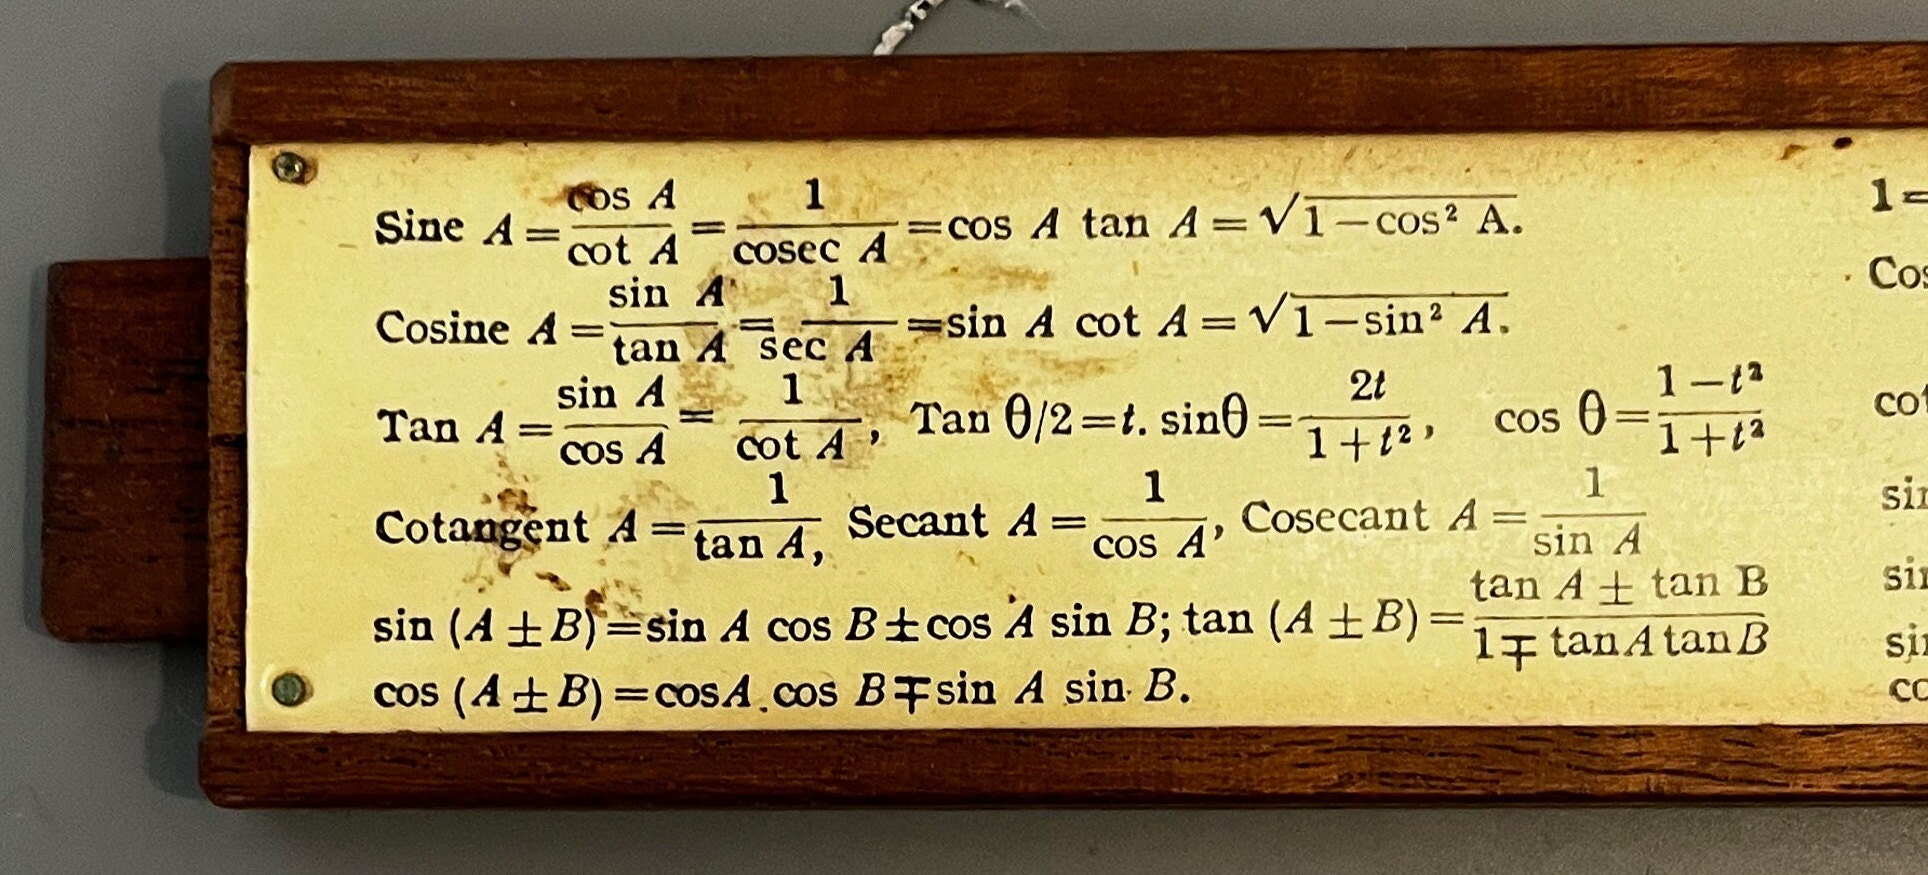 Sine A = cos A / cot A = 1 / cosec A = cos A tan A = √1−cos² A. 1=
Cosine A = sin A / tan A = 1 / sec A = sin A cot A = √1−sin² A. Cos
Tan A = sin A / cos A = 1 / cot A, Tan θ/2 = t. sinθ = 2t / 1+t², cos θ = 1−t² / 1+t² cot
Cotangent A = 1 / tan A, Secant A = 1 / cos A, Cosecant A = 1 / sin A sin
sin (A ± B) = sin A cos B ± cos A sin B; tan (A ± B) = tan A ± tan B / 1 ∓ tan A tan B sin
cos (A ± B) = cosA . cos B ∓ sin A sin B.